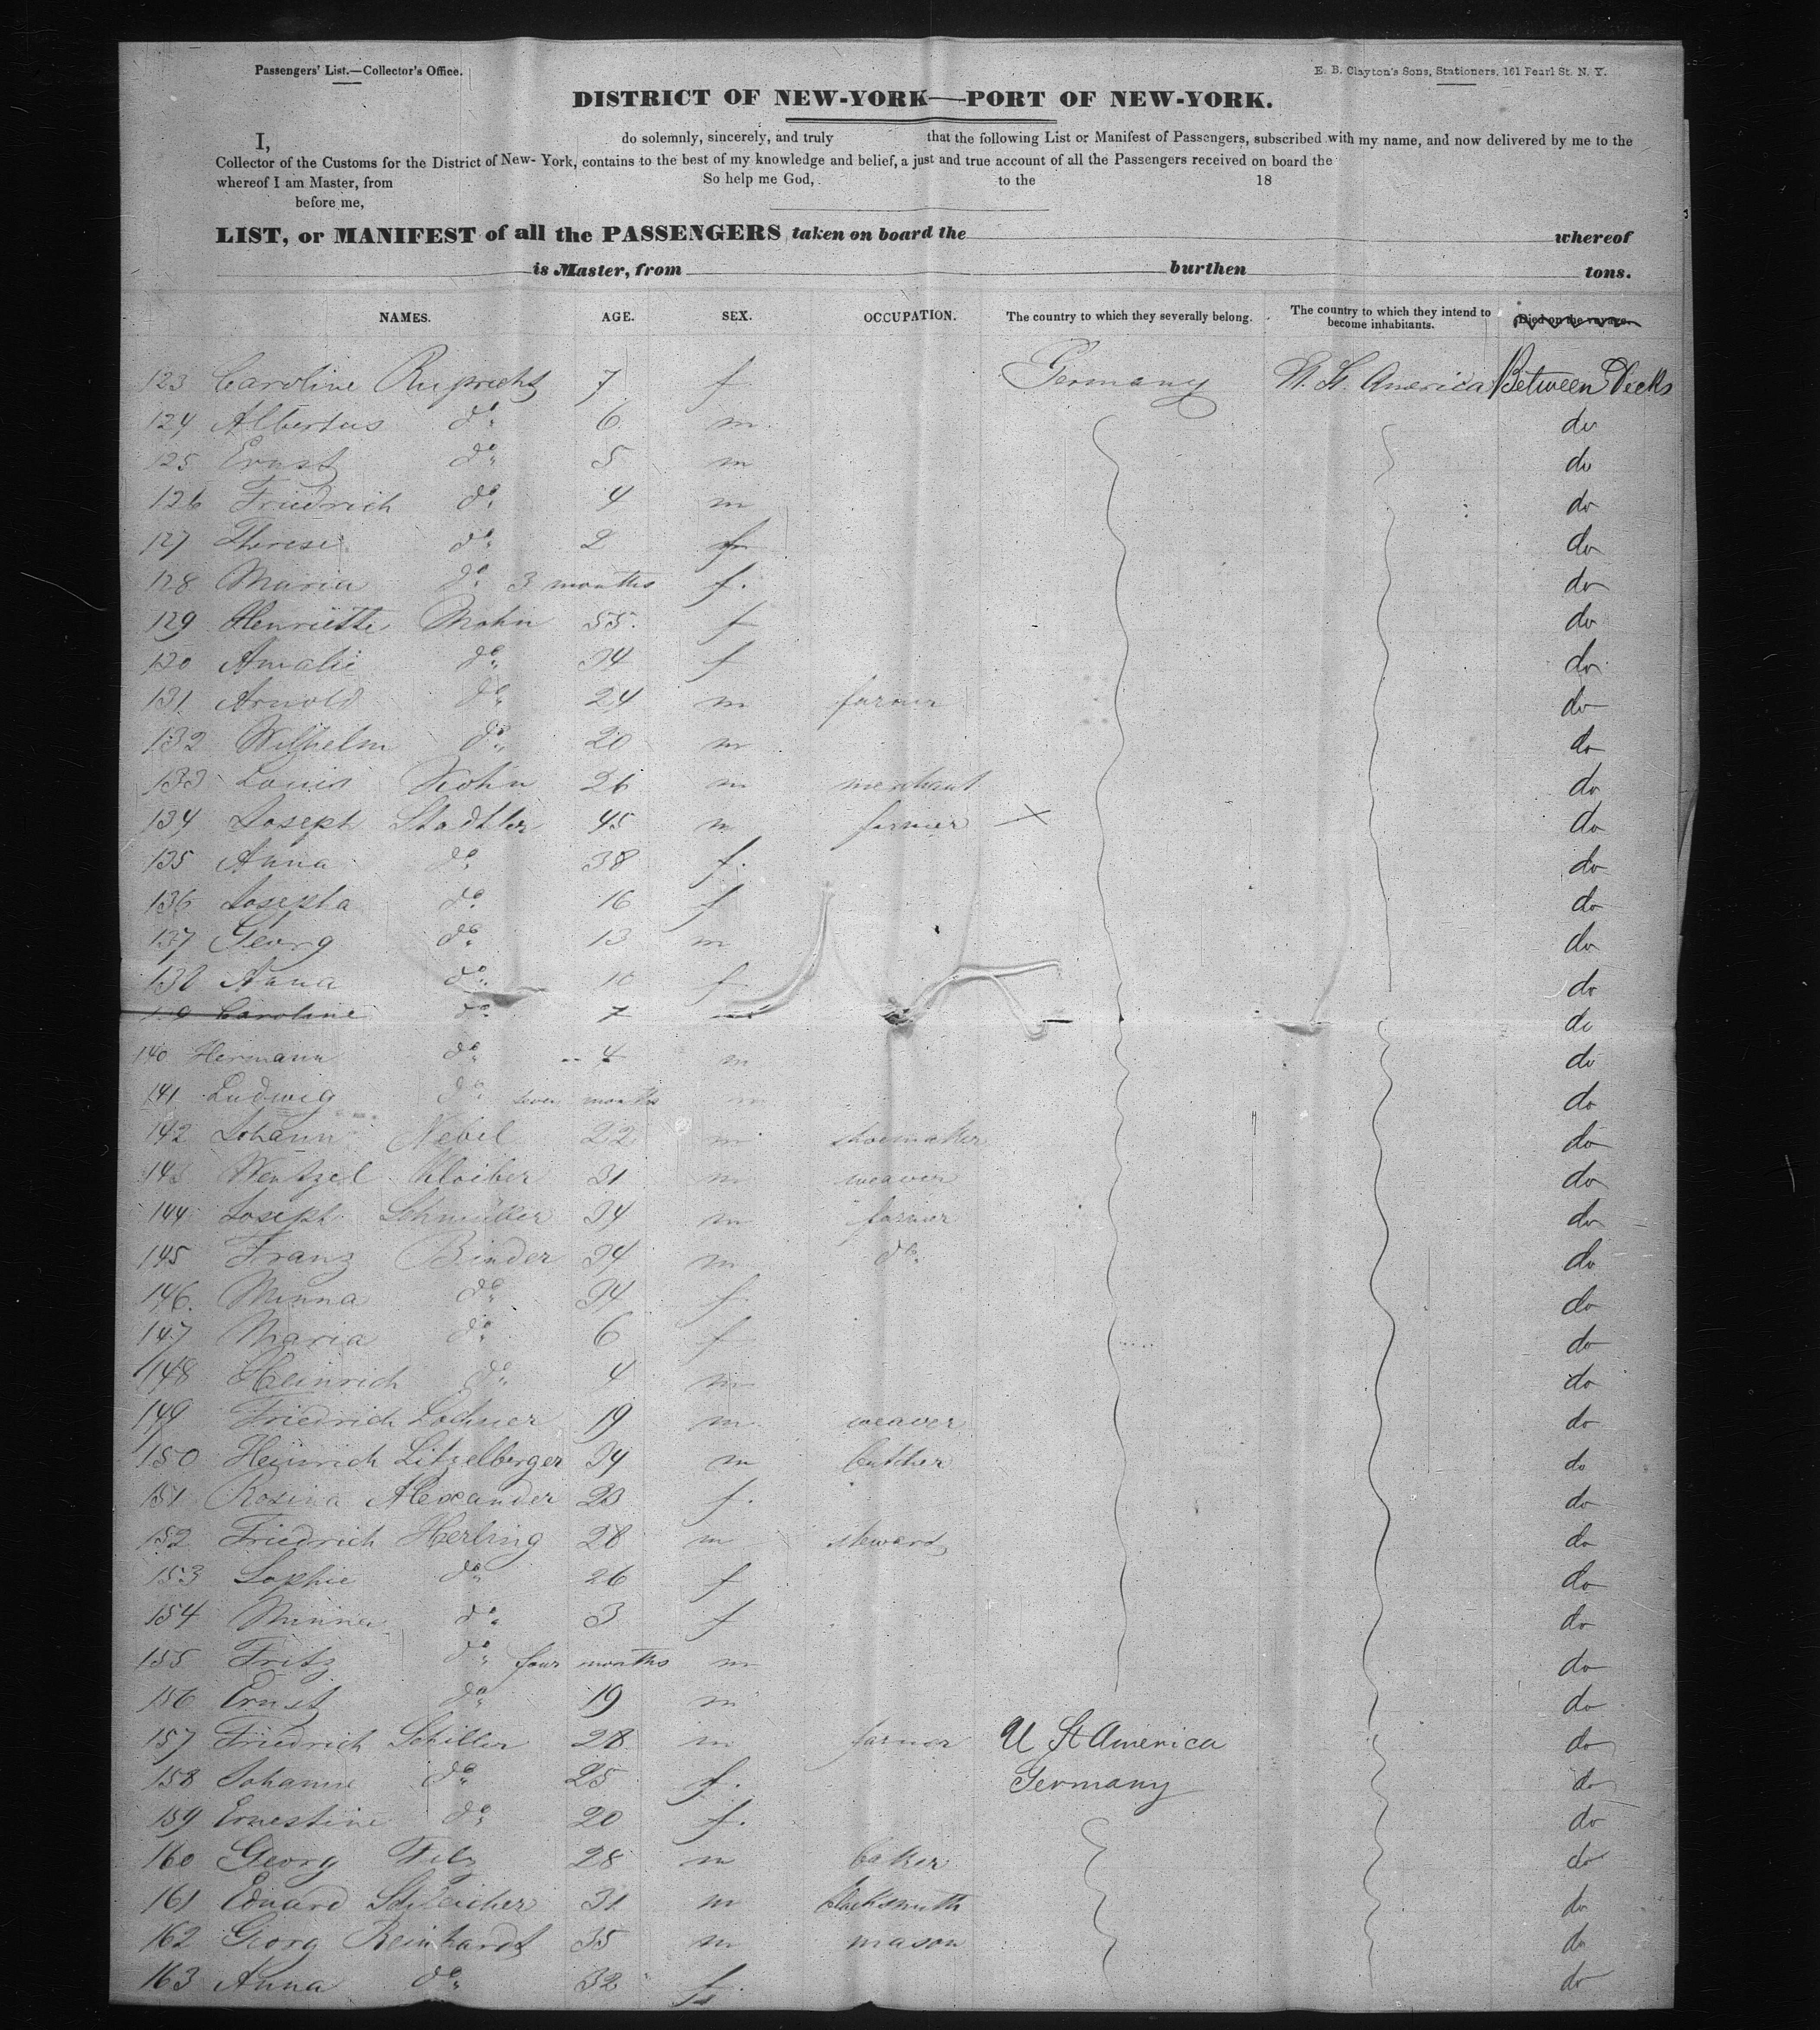 Passengers' List.—Collector's Office.
E. B. Clayton's Sons, Stationers, 161 Pearl St. N. Y.
DISTRICT OF NEW-YORK—PORT OF NEW-YORK.
I, do solemnly, sincerely, and truly that the following List or Manifest of Passengers, subscribed with my name, and now delivered by me to the
Collector of the Customs for the District of New-York, contains to the best of my knowledge and belief, a just and true account of all the Passengers received on board the
whereof I am Master, from So help me God, to the 18
before me,
LIST, or MANIFEST of all the PASSENGERS taken on board the whereof
is Master, from burthen tons.
NAMES. AGE. SEX. OCCUPATION. The country to which they severally belong. The country to which they intend to become inhabitants. Died on the voyage.
123 Caroline Ruprecht 7 f Germany U. St. America Between Decks
124 Albertus do 6 m do
125 Ernst do 5 m do
126 Friedrich do 4 m do
127 Therese do 2 f do
128 Maria do 3 months f. do
129 Henriette Mohn 55. f do
130 Amalie do 34 f do
131 Arnold do 24 m farmer do
132 Wilhelm do 20 m do
133 Louis Kohn 26 m merchant do
134 Joseph Stadtler 45 m farmer X do
135 Anna do 38 f. do
136 Josepha do 16 f do
137 Georg do 13 m do
138 Anna do 10 f do
139 Caroline do 7 do
140 Hermann do 4 m do
141 Ludwig do seven months m do
142 Johann Nebel 22 m shoemaker do
143 Wentzel Kloiber 31 m weaver do
144 Joseph Schmüller 34 m farmer do
145 Franz Binder 34 m do do
146. Minna do 34 f do
147 Maria do 6 f do
148 Heinrich do 4 m do
149 Friedrich Lochner 19 m weaver do
150 Heinrich Litzelberger 34 m butcher do
151 Rosina Alexander 23 f. do
152 Friedrich Herling 28 m steward do
153 Sophie do 26 f do
154 Minna do 3 f do
155 Fritz do four months m do
156 Ernst do 19 m do
157 Friedrich Schiller 28 m farmer U St America do
158 Johanne do 25 f. Germany do
159 Ernestine do 20 f. do
160 Georg Felz 28 m baker do
161 Eduard Schleicher 31 m blacksmith do
162 Georg Reinhardt 35 m mason do
163 Anna do 32 f. do